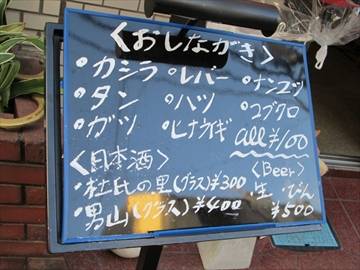 〈おしながき〉
・カシラ ・レバー ・ナンコツ
・タン ・ハツ ・コブクロ
・ガツ ・ヒナネギ all ¥100
〈日本酒〉 〈Beer〉
・杜氏の里(グラス)¥300 生・びん
・男山(グラス)¥400 ¥500